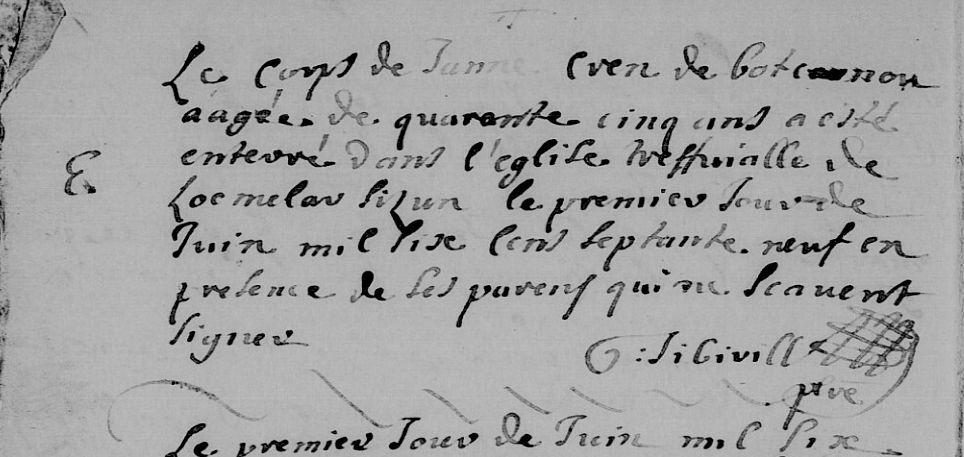 Le corps de Janne Cren de botcaznou
aagée de quarante cinq ans a esté
enterré dans l'eglise treffuialle de
E
Locmelar Sizun le premier Jour de
Juin mil six cens septante neuf en
presence de ses parens qui ne scauent
signer
G : Sibivill
ptre
Le premier Jour de Juin mil six